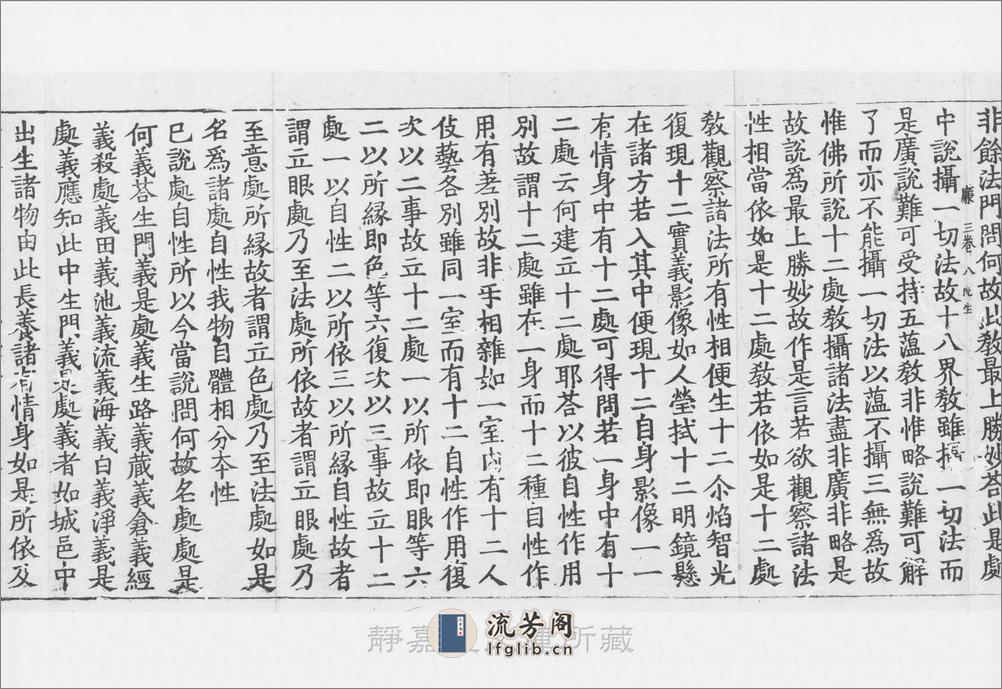 非餘法門問何故此教最上勝妙荅此是處
中說攝一切法故十八界教雖攝一切法而
廉 三卷 八 阮生
是廣說難可受持五蕰教非惟略說難可解
了而亦不能攝一切法以蕰不攝三無為故
惟佛所說十二處教攝諸法盡非廣非略是
故說為最上勝妙故作是言若欲觀察諸法
性相當依如是十二處教若依如是十二處
教觀察諸法所有性相便生十二尒焰智光
復現十二實義影像如人瑩拭十二明鏡懸
在諸方若入其中便現十二自身影像一一
有情身中有十二處可得問若一身中有十
二處云何建立十二處耶荅以彼自性作用
別故謂十二處雖在一身而十二種自性作
用有差別故非乎相雜如一室內有十二人
伎藝各別雖同一室而有十二自性作用復
次以二事故立十二處一以所依即眼等六
二以所緣即色等六復次以三事故立十二
處一以自性二以所依三以所緣自性故者
謂立眼處乃至法處所依故者謂立眼處乃
至意處所緣故者謂立色處乃至法處如是
名為諸處自性我物自體相分夲性
已說處自性所以今當說問何故名處處是
何義荅生門義是處義生路義藏義倉義經
義殺處義田義池義流義海義白義淨義是
處義應知此中生門義是處義者如城邑中
出生諸物由此長養諸有情身如是所依及
靜嘉 所藏
流芳阁
lfglib.cn